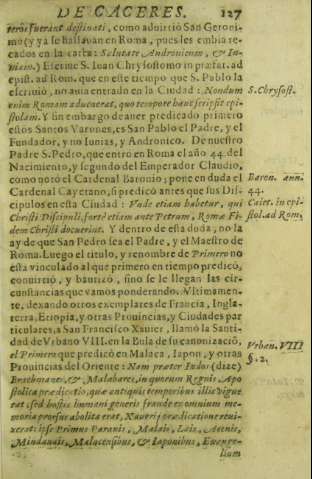 DE CACERES. 127
fuerant destinati, como aduirtió San Geroni-
mo (y ya se hallauan en Roma, pues les embia re-
cados en la carta: Salutate Andronicum, & Iu-
niam.) Escriue S. Iuan Chrysostomo in præfat. ad
epist. ad Rom. que en este tiempo que S. Pablo la
escriuió, no auia entrado en la Ciudad: Nondum S. Chrysost.
enim Romam aduenerat, quo tempore hanc scripsit epi-
stolam. Y sin embargo de auer predicado primero
estos Santos Varones, es San Pablo el Padre, y el
Fundador, y no Iunias, y Andronico. De nuestro
Padre S. Pedro, que entró en Roma el año 44. del
Nacimiento, y segundo del Emperador Claudio,
como notó el Cardenal Baronio; pone en duda el Baron. ann.
Cardenal Cayetano, si predicó antes que sus Dis- 44.
cipulos en esta Ciudad: Vnde etiam habetur, qui Caiet. in epi-
Christi Discipuli, fortè etiam ante Petrum, Romæ Fi- stol. ad Rom.
dem Christi docuerint. Y dentro de esta duda, no la
ay de que San Pedro sea el Padre, y el Maestro de
Roma. Luego el titulo, y renombre de Primero no
està vinculado al que primero en tiempo predicó,
conuirtió, y bautizó, sino se le llegan las cir-
cunstancias que vamos ponderando. Vltimamen-
te, dexando otros exemplares de Francia, Ingla-
terra, Etiopia, y otras Prouincias, y Ciudades par
ticulares, a San Francisco Xauier, llamó la Santi-
dad de Vrbano VIII. en la Bula de su canonizació, Vrban. VIII
el Primero que predicó en Malaca, Iapon, y otras §. 2.
Prouincias del Oriente: Nam præter Indos (dize)
Brachmanes, & Malabares, in quorum Regnis Apo
stolica prædicatio, quæ antiquis temporibus illic vigue
rat, sed hostis humani generis fraude ex omnium me-
moria prorsus abolita erat, Xauerij prædicatione reui-
xerat: ipse Primus Parauis, Malais, Iais, Acenis,
Mindanais, Malacensibus, & Iaponibus, Euange-
lium